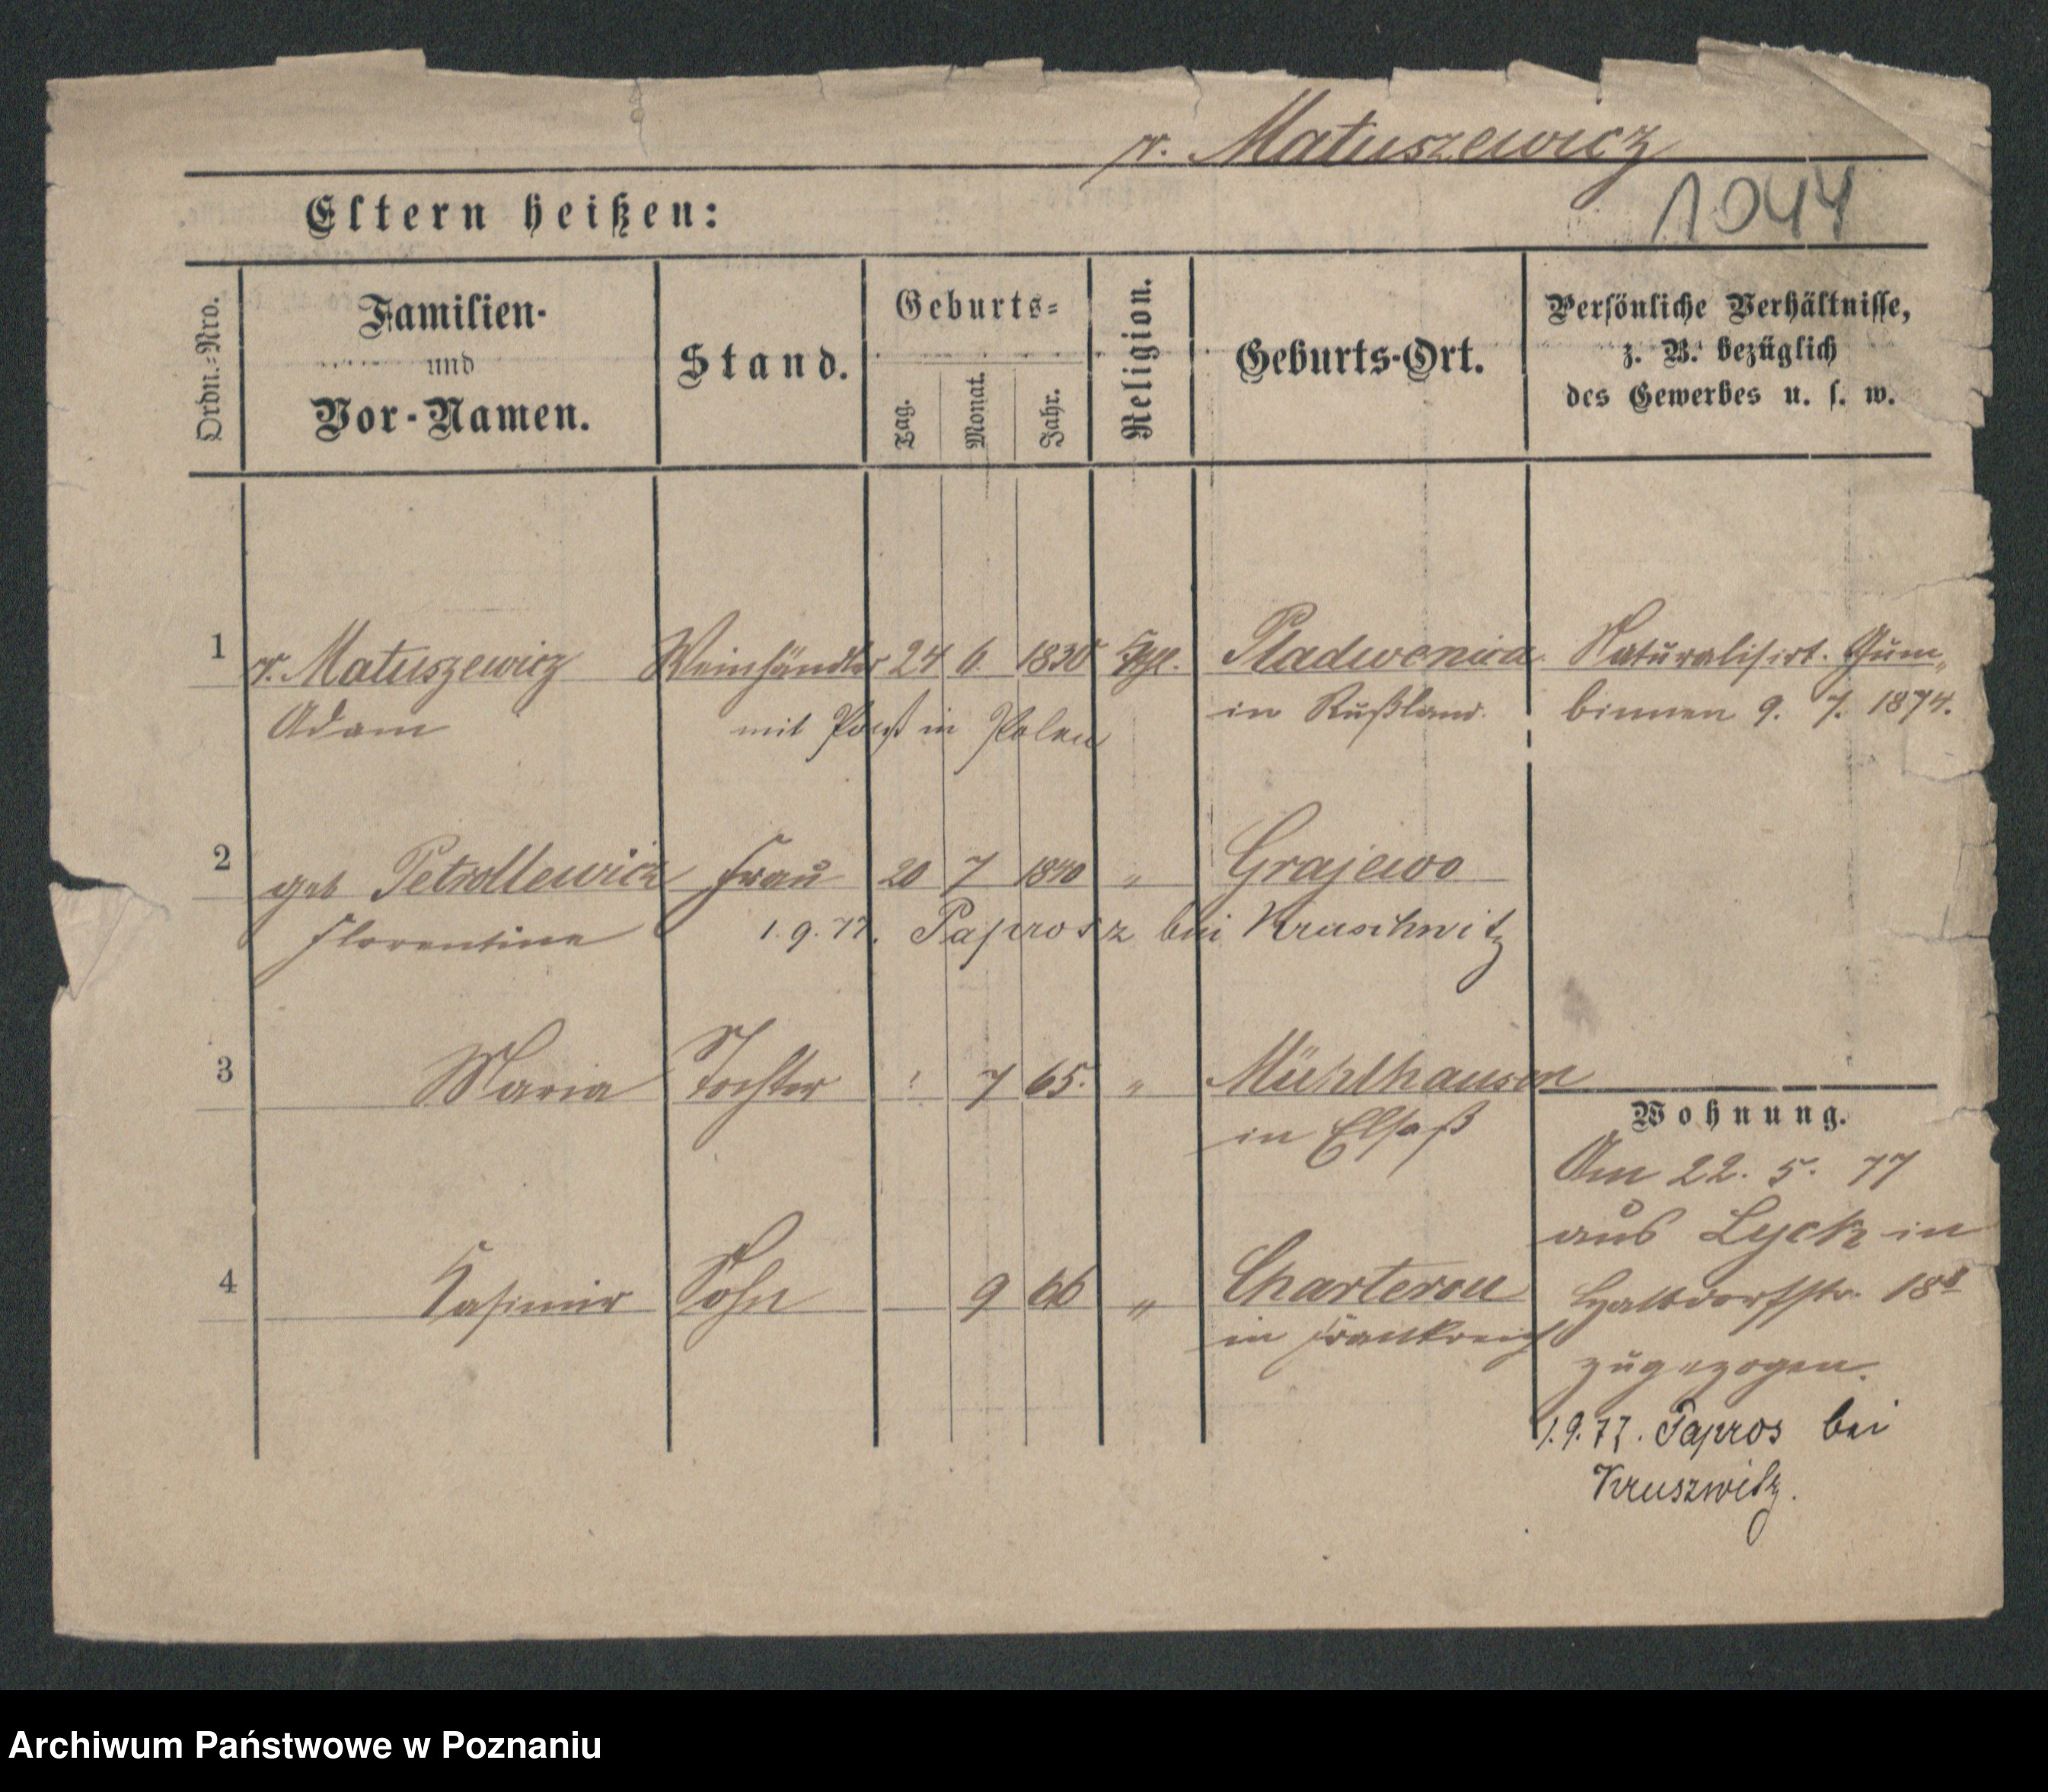 v. Matuszewicz
1044
Eltern heißen:
Ordn.-Nro.
Familien-
und
Vor-Namen.
Stand.
Geburts-
Tag.
Monat.
Jahr.
Religion.
Geburts-Ort.
Persönliche Verhältnisse,
z. B. bezüglich
des Gewerbes u. s. w.
1 v. Matuszewicz Weinhändler 24 6. 1830 Pladwenica Naturalisirt. Gum-
Adam mit in Polen in Rußland. binnen 9. 7. 1874.
2 geb Petrollewicz Frau 20 7 1840 " Grajewo
Florentine 1.9.77. Paprosz bei Kruschwitz
3 Maria Tochter 7 65. " Mühlhausen
in Elsaß
Wohnung.
Am 22. 5. 77
aus Lyck in
4 Kasimir Sohn 9 66 " Charterou
in Frankreich
Halbdorfstr. 18
zugezogen.
1.9.77. Papros bei
Kruszwitz.
Archiwum Państwowe w Poznaniu